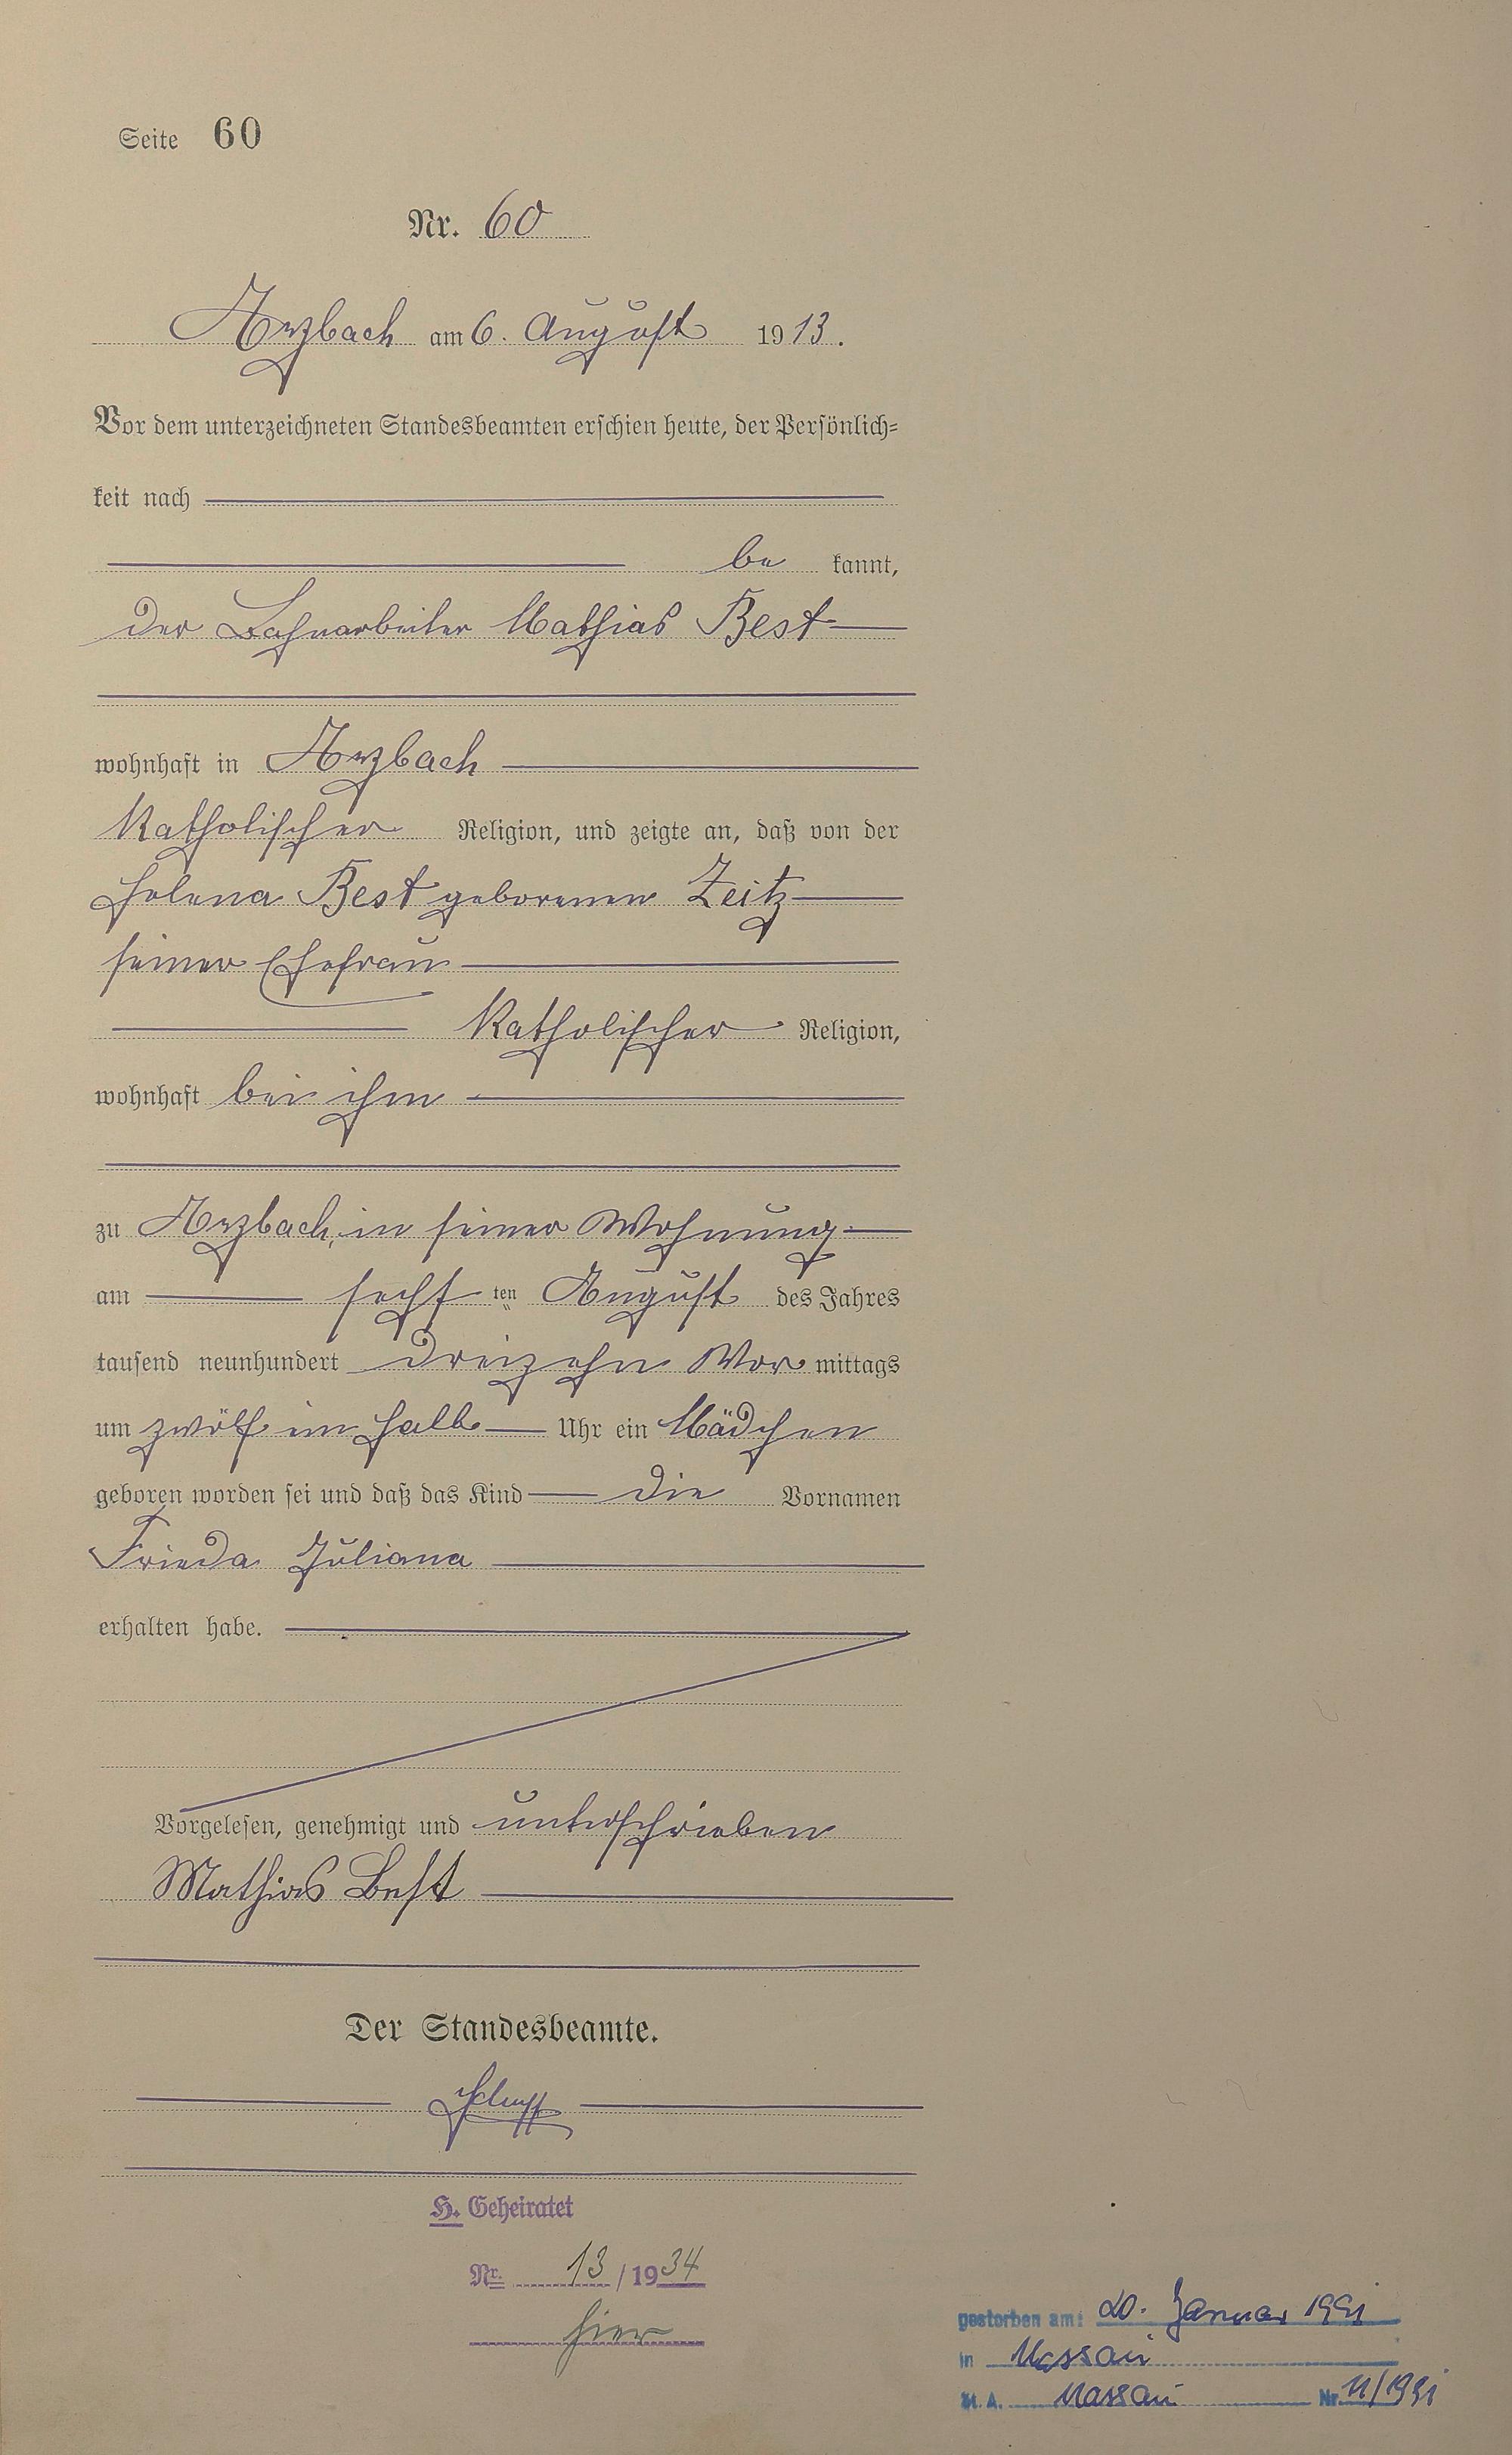 Seite 60
Nr. 60
Arzbach am 6. August 1913.
Vor dem unterzeichneten Standesbeamten erschien heute, der Persönlich-
keit nach
be kannt,
der Bahnarbeiter Mathias Best
wohnhaft in Arzbach
Katholischer Religion, und zeigte an, daß von der
Helena Best geborenen Zeitz
seiner Ehefrau
Katholischer Religion,
wohnhaft bei ihm
zu Arzbach, in seiner Wohnung
am sechsten August des Jahres
tausend neunhundert dreizehn Vormittags
um zwölf ein halb Uhr ein Mädchen
geboren worden sei und daß das Kind die Vornamen
Frieda Juliana
erhalten habe.
Vorgelesen, genehmigt und unterschrieben
Mathias Best
Der Standesbeamte.
H. Geheiratet
Nr. 13/1934
hier
gestorben am: 20. Januar 1991
in Nassau
St. A. Nassau Nr. 11/1991